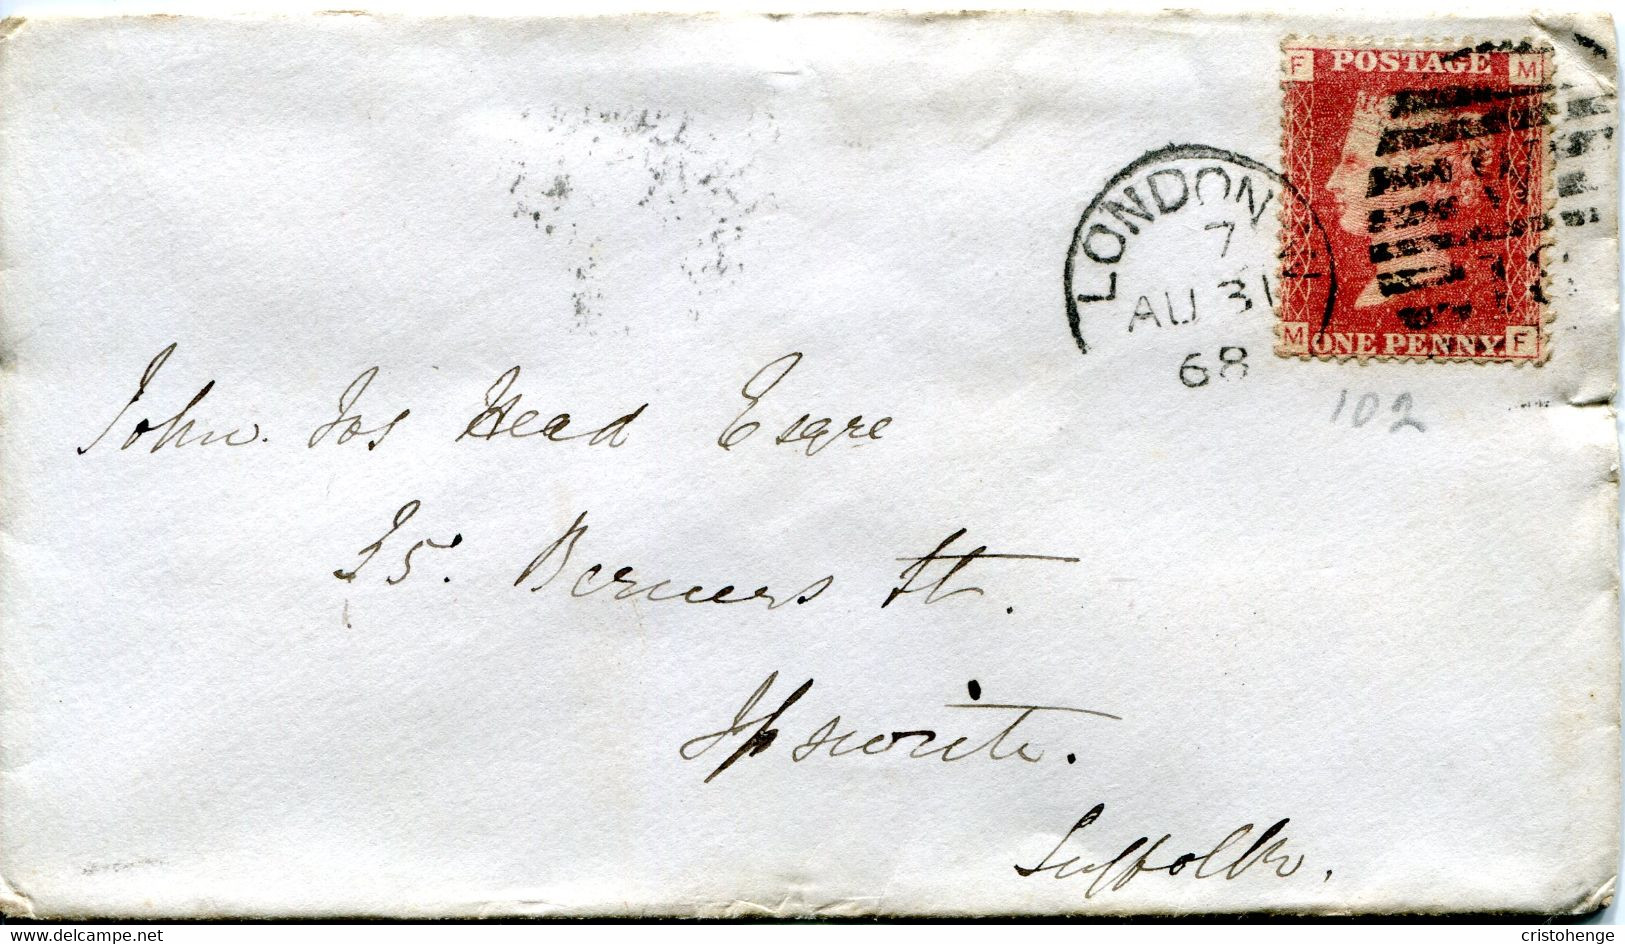 F POSTAGE M
LONDON
7
AU 31
68
M ONE PENNY F
102
John. Jos Head Esqre
35. Berners St.
Ipswich.
Suffolk.
www.delcampe.net
cristohenge